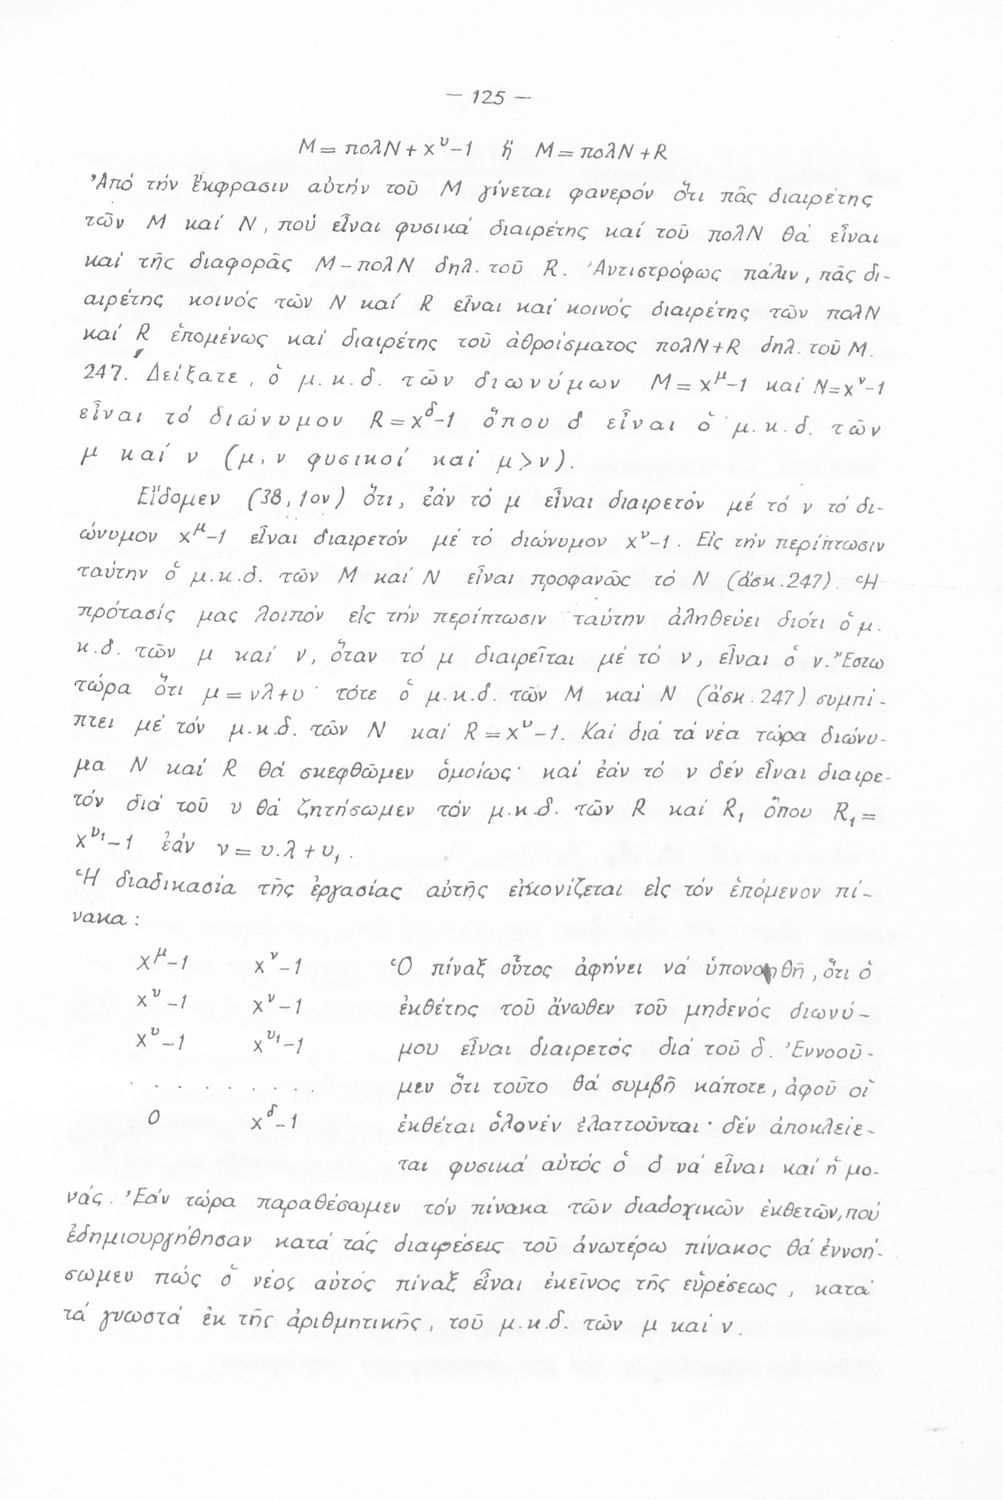 — 125 —
Μ = πολΝ + x^υ-1 ἤ Μ = πολΝ + R
Ἀπό τήν ἔκφρασιν αὐτήν τοῦ Μ γίνεται φανερόν ὅτι πᾶς διαιρέτης
τῶν Μ καί Ν, πού εἶναι φυσικά διαιρέτης καί τοῦ πολΝ θά εἶναι
καί τῆς διαφορᾶς Μ-πολΝ δηλ. τοῦ R. Ἀντιστρόφως πάλιν, πᾶς δι-
αιρέτης κοινός τῶν Ν καί R εἶναι καί κοινός διαιρέτης τῶν πολΝ
καί R ἑπομένως καί διαιρέτης τοῦ ἀθροίσματος πολΝ+R δηλ. τοῦ Μ.
247. Δείξατε, ὁ μ.κ.δ. τῶν διωνύμων Μ = x^μ-1 καί Ν=x^ν-1
εἶναι τό διώνυμον R = x^δ-1 ὅπου δ εἶναι ὁ μ.κ.δ. τῶν
μ καί ν (μ, ν φυσικοί καί μ>ν).
Εἴδομεν (38,1ον) ὅτι, ἐάν τό μ εἶναι διαιρετόν μέ τό ν τό δι-
ώνυμον x^μ-1 εἶναι διαιρετόν μέ τό διώνυμον x^ν-1. Εἰς τήν περίπτωσιν
ταύτην ὁ μ.κ.δ. τῶν Μ καί Ν εἶναι προφανῶς τό Ν (ἀσκ.247). Ἡ
πρότασίς μας λοιπόν εἰς τήν περίπτωσιν ταύτην ἀληθεύει διότι ὁ μ.
κ.δ. τῶν μ καί ν, ὅταν τό μ διαιρεῖται μέ τό ν, εἶναι ὁ ν. Ἔστω
τώρα ὅτι μ = νλ+υ · τότε ὁ μ.κ.δ. τῶν Μ καί Ν (ἀσκ.247) συμπί-
πτει μέ τόν μ.κ.δ. τῶν Ν καί R = x^υ-1. Καί διά τά νέα τώρα διώνυ-
μα Ν καί R θά σκεφθῶμεν ὁμοίως· καί ἐάν τό ν δέν εἶναι διαιρε-
τόν διά τοῦ υ θά ζητήσωμεν τόν μ.κ.δ. τῶν R καί R₁ ὅπου R₁ =
x^υ₁-1 ἐάν ν = υ.λ + υ₁.
Ἡ διαδικασία τῆς ἐργασίας αὐτῆς εἰκονίζεται εἰς τόν ἑπόμενον πί-
νακα:
x^μ-1 x^ν-1 Ὁ πίναξ οὗτος ἀφήνει νά ὑπονοηθῆ, ὅτι ὁ
x^υ-1 x^ν-1 ἐκθέτης τοῦ ἄνωθεν τοῦ μηδενός διωνύ-
x^υ-1 x^υ₁-1 μου εἶναι διαιρετός διά τοῦ δ. Ἐννοοῦ-
. . . . . . . μεν ὅτι τοῦτο θά συμβῆ κάποτε, ἀφοῦ οἱ
0 x^δ-1 ἐκθέται ὁλονέν ἐλαττοῦνται· δέν ἀποκλείε-
ται φυσικά αὐτός ὁ δ νά εἶναι καί ἡ μο-
νάς. Ἐάν τώρα παραθέσωμεν τόν πίνακα τῶν διαδοχικῶν ἐκθετῶν, πού
ἐδημιουργήθησαν κατά τάς διαιρέσεις τοῦ ἀνωτέρω πίνακος θά ἐννοή-
σωμεν πώς ὁ νέος αὐτός πίναξ εἶναι ἐκεῖνος τῆς εὑρέσεως, κατά
τά γνωστά ἐκ τῆς ἀριθμητικῆς, τοῦ μ.κ.δ. τῶν μ καί ν.